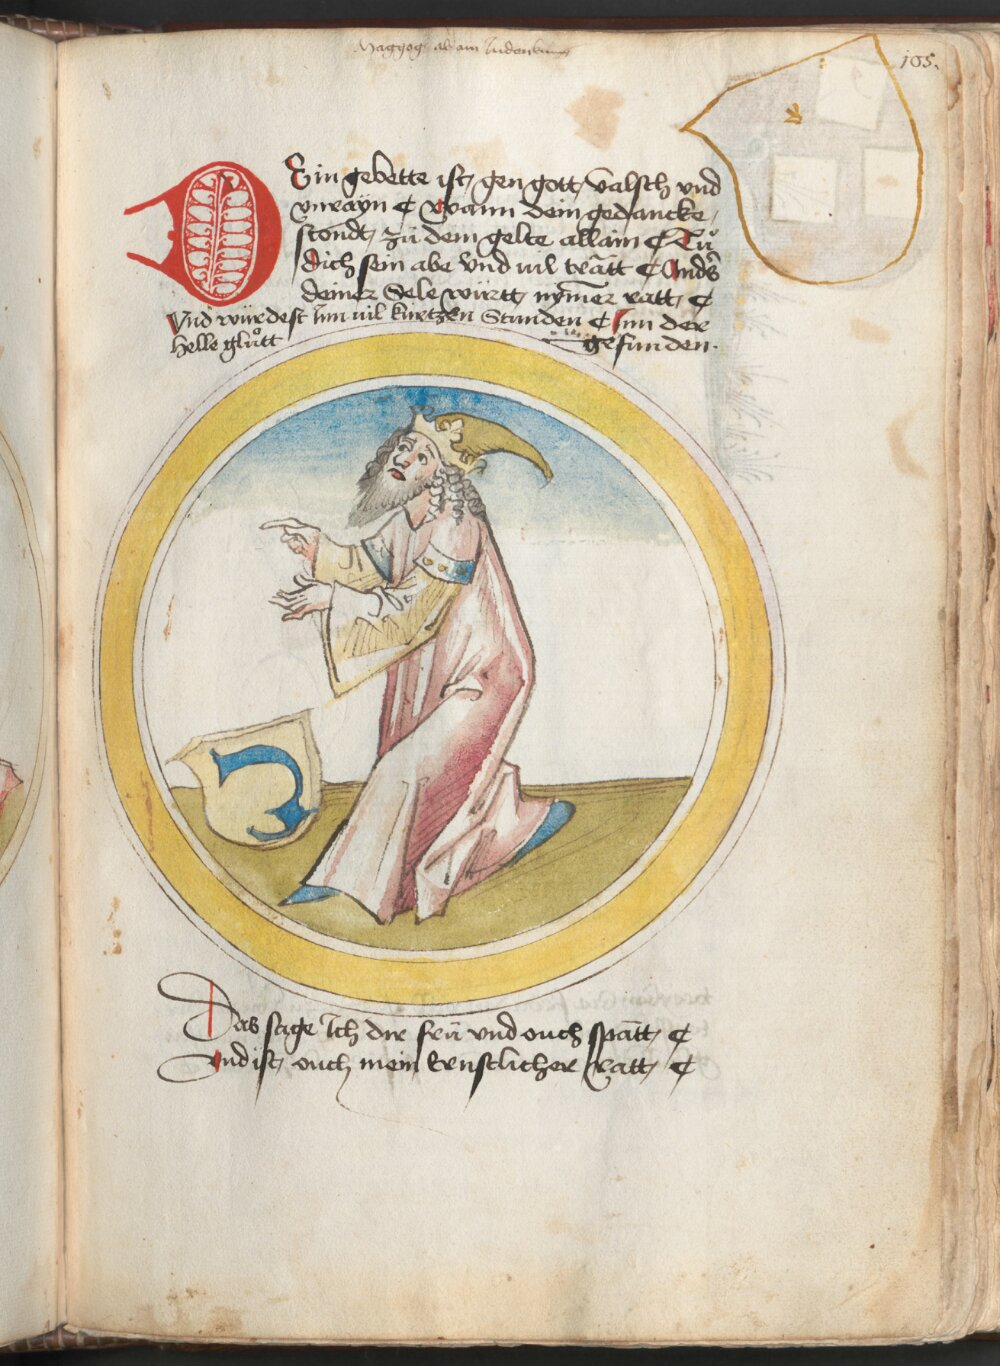 Maggog ab am Judenberg
105.
DEin gebette ist, gen gott, valsch vnd
vnrayn ¢ Wann dein gedancke,
stondt, zů dem gelte allain ¢ Tů
dich sein abe vnd uil tratt ¢ Anders
deiner Sele württ, nymer ratt, ¢
Vnd würdest Inn uil kürtzen Stunden ¢ Inn der
helle glůtt gefunden.
Das sage Ich dir frü vnd ouch spatt, ¢
vnd ist, ouch mein ernstlicher Ratt, ¢